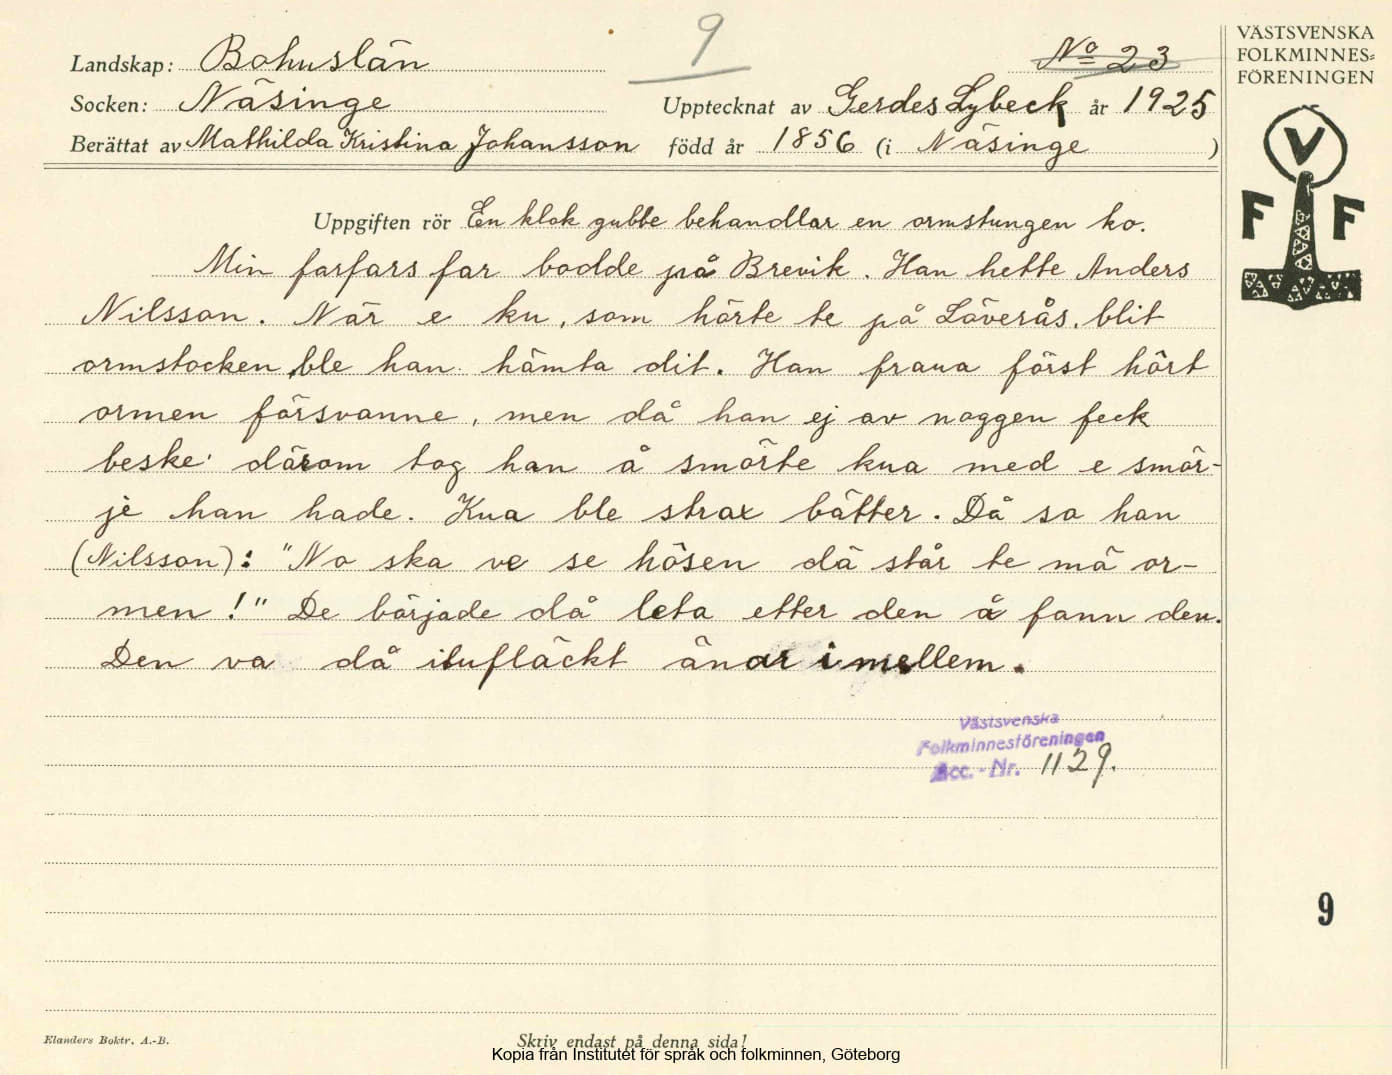 9
Nº 23
VÄSTSVENSKA
FOLKMINNES=
FÖRENINGEN
Landskap: Bohuslän
Socken: Näsinge Upptecknat av Gerdes Lybeck år 1925
Berättat av Mathilda Kristina Johansson född år 1856 (i Näsinge )
V
F F
Uppgiften rör En klok gubbe behandlar en ormstungen ko.
Min farfars far bodde på Brevik. Han hette Anders
Nilsson. När e ku, som hörte te på Löverås, blit
ormstocken, ble han hämta dit. Han fraua först hört
ormen försvanne, men då han ej av noggen feck
beske' därom tog han å smörte kua med e smör-
je han hade. Kua ble strax bätter. Då sa han
(Nilsson): "No ska ve se hösen dä står te mä or-
men!" De började då leta etter den å fann den.
Den va då itufläckt änar imellem.
Västsvenska
Folkminnesföreningen
Acc. - Nr. 1129.
9
Elanders Boktr. A.-B.
Skriv endast på denna sida!
Kopia från Institutet för språk och folkminnen, Göteborg